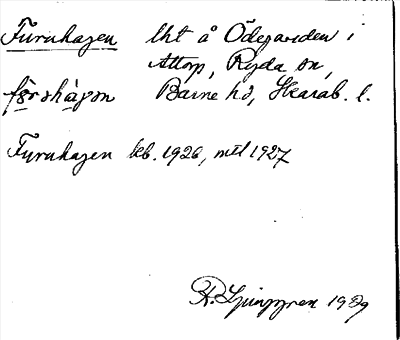 Furuhagen lht å Ödegården i
Attorp, Ryda sn,
Barne hd, Skarab. l.
Furuhagen leb. 1926, mtl 1927
R. Ljunggren 1929